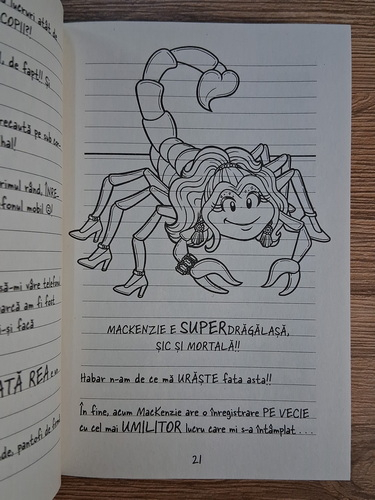 lucruri atât de
COPII?!
, de fapt!! Și
recaută pe sub
hal!
rimul rând, ÎNRE-
fonul mobil ☹!
să-mi vâre telefonul
arcă am fi fost
-și facă
ATĂ REA
de, pantofi de firmă
MACKENZIE E SUPERDRĂGĂLAȘĂ,
ȘIC ȘI MORTALĂ!!
Habar n-am de ce mă URĂȘTE fata asta!!
În fine, acum MacKenzie are o înregistrare PE VECIE
cu cel mai UMILITOR lucru care mi s-a întâmplat . . .
21